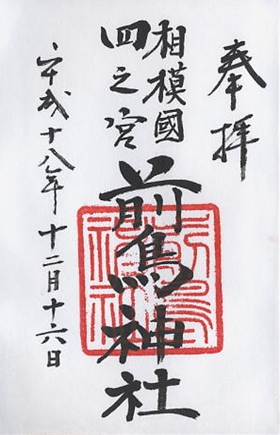 奉拝
相模國
四之宮
前鳥神社
平成十八年十二月十六日